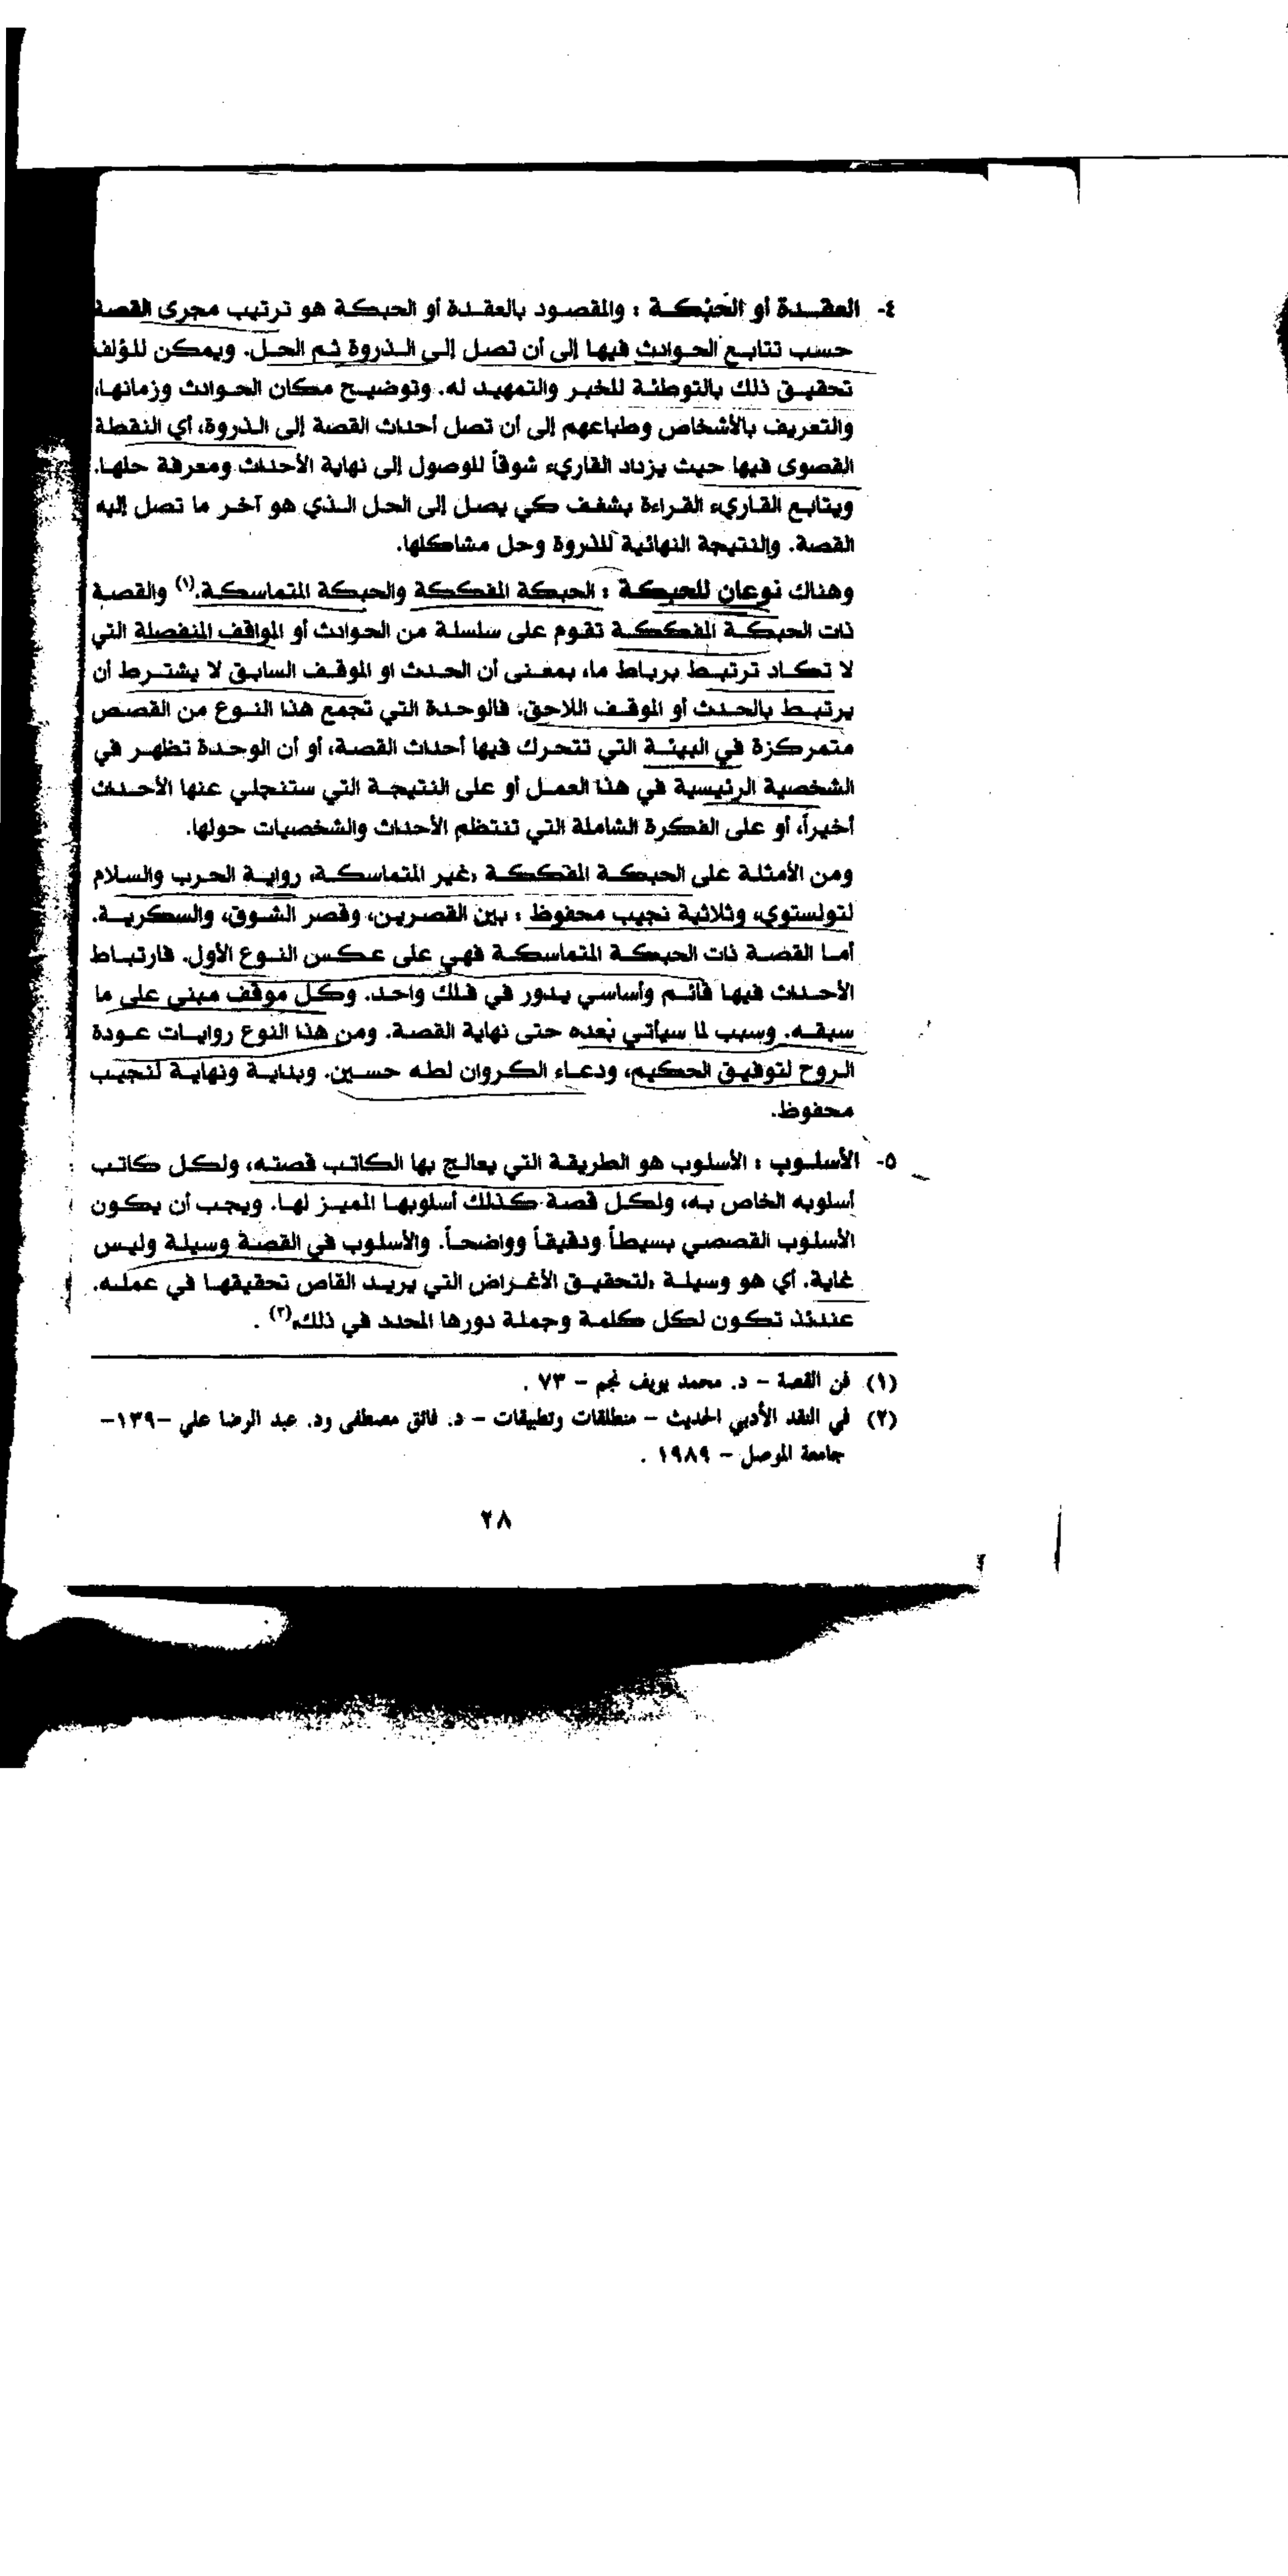 ٤- العقدة أو الحَبْكة : والمقصود بالعقدة أو الحبكة هو ترتيب مجرى القصة
حسب تتابع الحوادث فيها إلى أن تصل إلى الذروة ثم الحل. ويمكن للمؤلف
تحقيق ذلك بالتوطئة للخبر والتمهيد له. وتوضيح مكان الحوادث وزمانها،
والتعريف بالأشخاص وطباعهم إلى أن تصل أحداث القصة إلى الذروة، أي النقطة
القصوى فيها حيث يزداد القاريء شوقاً للوصول إلى نهاية الأحداث ومعرفة حلها.
ويتابع القاريء القراءة بشغف كي يصل إلى الحل الذي هو آخر ما تصل إليه
القصة. والنتيجة النهائية للذروة وحل مشاكلها.
وهناك نوعان للحبكة : الحبكة المفككة والحبكة المتماسكة.(١) والقصة
ذات الحبكة المفككة تقوم على سلسلة من الحوادث أو المواقف المنفصلة التي
لا تكاد ترتبط برباط ما، بمعنى أن الحدث او الموقف السابق لا يشترط أن
يرتبط بالحدث أو الموقف اللاحق. فالوحدة التي تجمع هذا النوع من القصص
متمركزة في البيئة التي تتحرك فيها أحداث القصة، أو أن الوحدة تظهر في
الشخصية الرئيسية في هذا العمل أو على النتيجة التي ستنجلي عنها الأحداث
أخيراً، أو على الفكرة الشاملة التي تنتظم الأحداث والشخصيات حولها.
ومن الأمثلة على الحبكة المفككة ،غير المتماسكة، رواية الحرب والسلام
لتولستوي، وثلاثية نجيب محفوظ : بين القصرين، وقصر الشوق، والسكرية.
أما القصة ذات الحبكة المتماسكة فهي على عكس النوع الأول. فارتباط
الأحداث فيها قائم وأساسي يدور في فلك واحد. وكل موقف مبني على ما
سبقه. وسبب لما سيأتي بعده حتى نهاية القصة. ومن هذا النوع روايات عودة
الروح لتوفيق الحكيم، ودعاء الكروان لطه حسين. وبداية ونهاية لنجيب
محفوظ.
٥- الأسلوب : الأسلوب هو الطريقة التي يعالج بها الكاتب قصته، ولكل كاتب
أسلوبه الخاص به، ولكل قصة كذلك أسلوبها المميز لها. ويجب أن يكون
الأسلوب القصصي بسيطاً ودقيقاً وواضحاً. والأسلوب في القصة وسيلة وليس
غاية. أي هو وسيلة ،لتحقيق الأغراض التي يريد القاص تحقيقها في عمله.
عندئذ تكون لكل كلمة وجملة دورها المحدد في ذلك،(٢) .
(١) فن القصة – د. محمد يوسف نجم – ٧٣ .
(٢) في النقد الأدبي الحديث – منطلقات وتطبيقات – د. فائق مصطفى ود. عبد الرضا علي –١٣٩–
جامعة الموصل – ١٩٨٩ .
٢٨